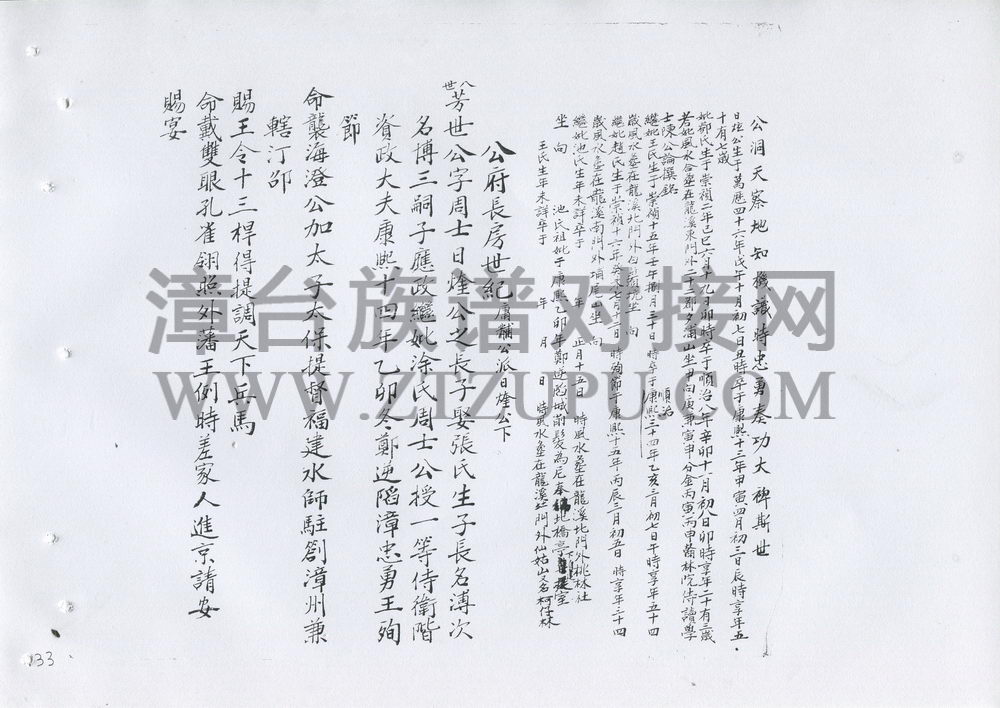 公洞天察地知機識時忠勇奏功大裨斯世
日炷公生于萬曆四十六年戊午十月初七日丑時卒于康熙十三年申寅四月初三日辰時享年五
十有七歲
妣鄭氏生于崇禎二年己巳六月十九日卯時卒于順治八年辛卯十一月初八日卯時享年二十有三歲
若妣風水合塟在龍溪東門外二十二都夕浦山坐甲向庚兼寅申分金丙寅丙申翰林院侍讀學
士陳公論撰銘
繼妣王氏生于崇禎十五年壬午捌月三十日時卒于康熙三十四年乙亥三月初七日午時享年五十四
順治
歲風水塟在龍溪北門外白 坑坐 向
繼妣趙氏生于崇禎十六年癸未七月十二日 時殉節于康熙十五年丙辰三月初五日 時享年三十四
歲風水塟在龍溪南門外 尾坐 向
繼妣池氏生年未詳卒于 年 正月十五日 時風水塟在龍溪北門外桃林社
坐 向 池氏祖妣于康熙乙卯年鄭逆陷城削髮為尼奉佛北橋亭 堂
王氏生年未詳卒于 年 月 日 時風水塟在龍溪北門外仙姑山又名柯仔林
公府長房世紀 公派日燈公下
八世
芳世公字周士日燈公之長子娶張氏生子長名溥次
名博三嗣子應政繼妣涂氏周士公授一等侍衛階
資政大夫康熙十四年乙卯冬鄭逆陷漳忠勇王殉
節
命襲海澄公加太子太保提督福建水師駐劄漳州兼
轄汀邵
賜王令十三桿得提調天下兵馬
命戴雙眼孔雀翎照外藩王例時差家人進京請安
賜宴
133
漳台族谱对接网
WWW.ZTZUPU.COM